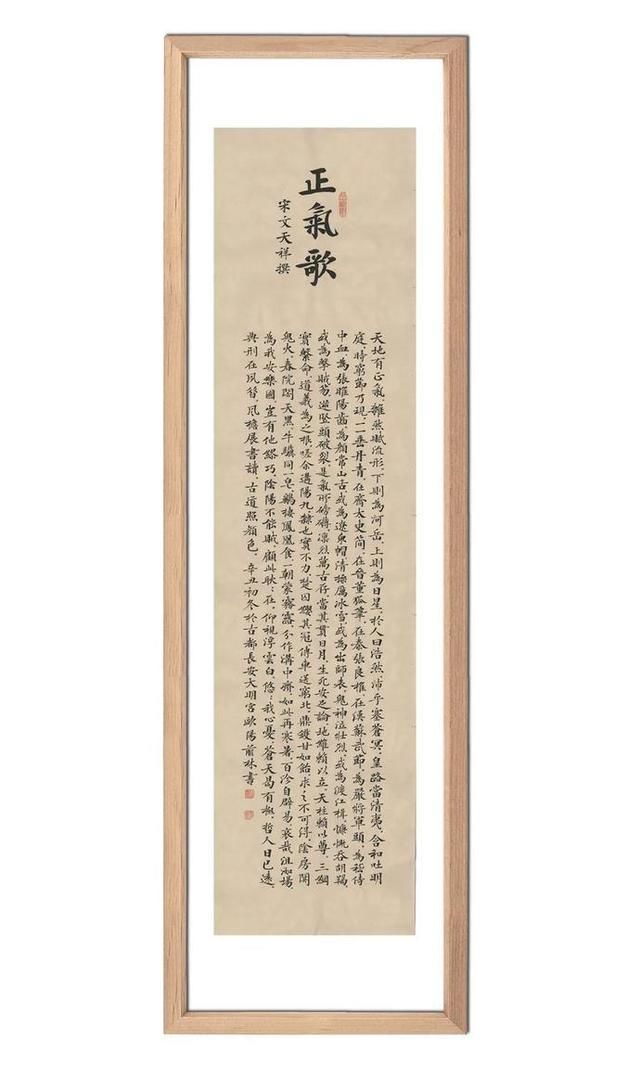 正氣歌
宋文天祥撰
天地有正氣，雜然賦流形，下則為河岳，上則為日星，於人曰浩然，沛乎塞蒼冥，皇路當清夷，含和吐明
庭，時窮節乃現，一一垂丹青，在齊太史簡，在晉董狐筆，在秦張良椎，在漢蘇武節，為嚴將軍頭，為嵇侍
中血，為張睢陽齒，為顏常山舌，或為遼東帽，清操厲冰雪，或為出師表，鬼神泣壯烈，或為渡江楫，慷慨吞胡羯
或為擊賊笏，逆豎頭破裂，是氣所磅礴，凜烈萬古存，當其貫日月，生死安足論，地維賴以立，天柱賴以尊，三綱
實繫命，道義為之根，嗟余遘陽九，隸也實不力，楚囚纓其冠，傳車送窮北，鼎鑊甘如飴，求之不可得，陰房闃
鬼火，春院閟天黑，牛驥同一皂，鷄棲鳳凰食，一朝蒙霧露，分作溝中瘠，如此再寒暑，百沴自辟易，哀哉沮洳場
為我安樂國，豈有他繆巧，陰陽不能賊，顧此耿：在，仰視浮雲白，悠：我心憂，蒼天曷有極，哲人日已遠
典刑在夙昔，風檐展書讀，古道照顏色，辛丑初冬於古都長安大明宮歐陽前林書